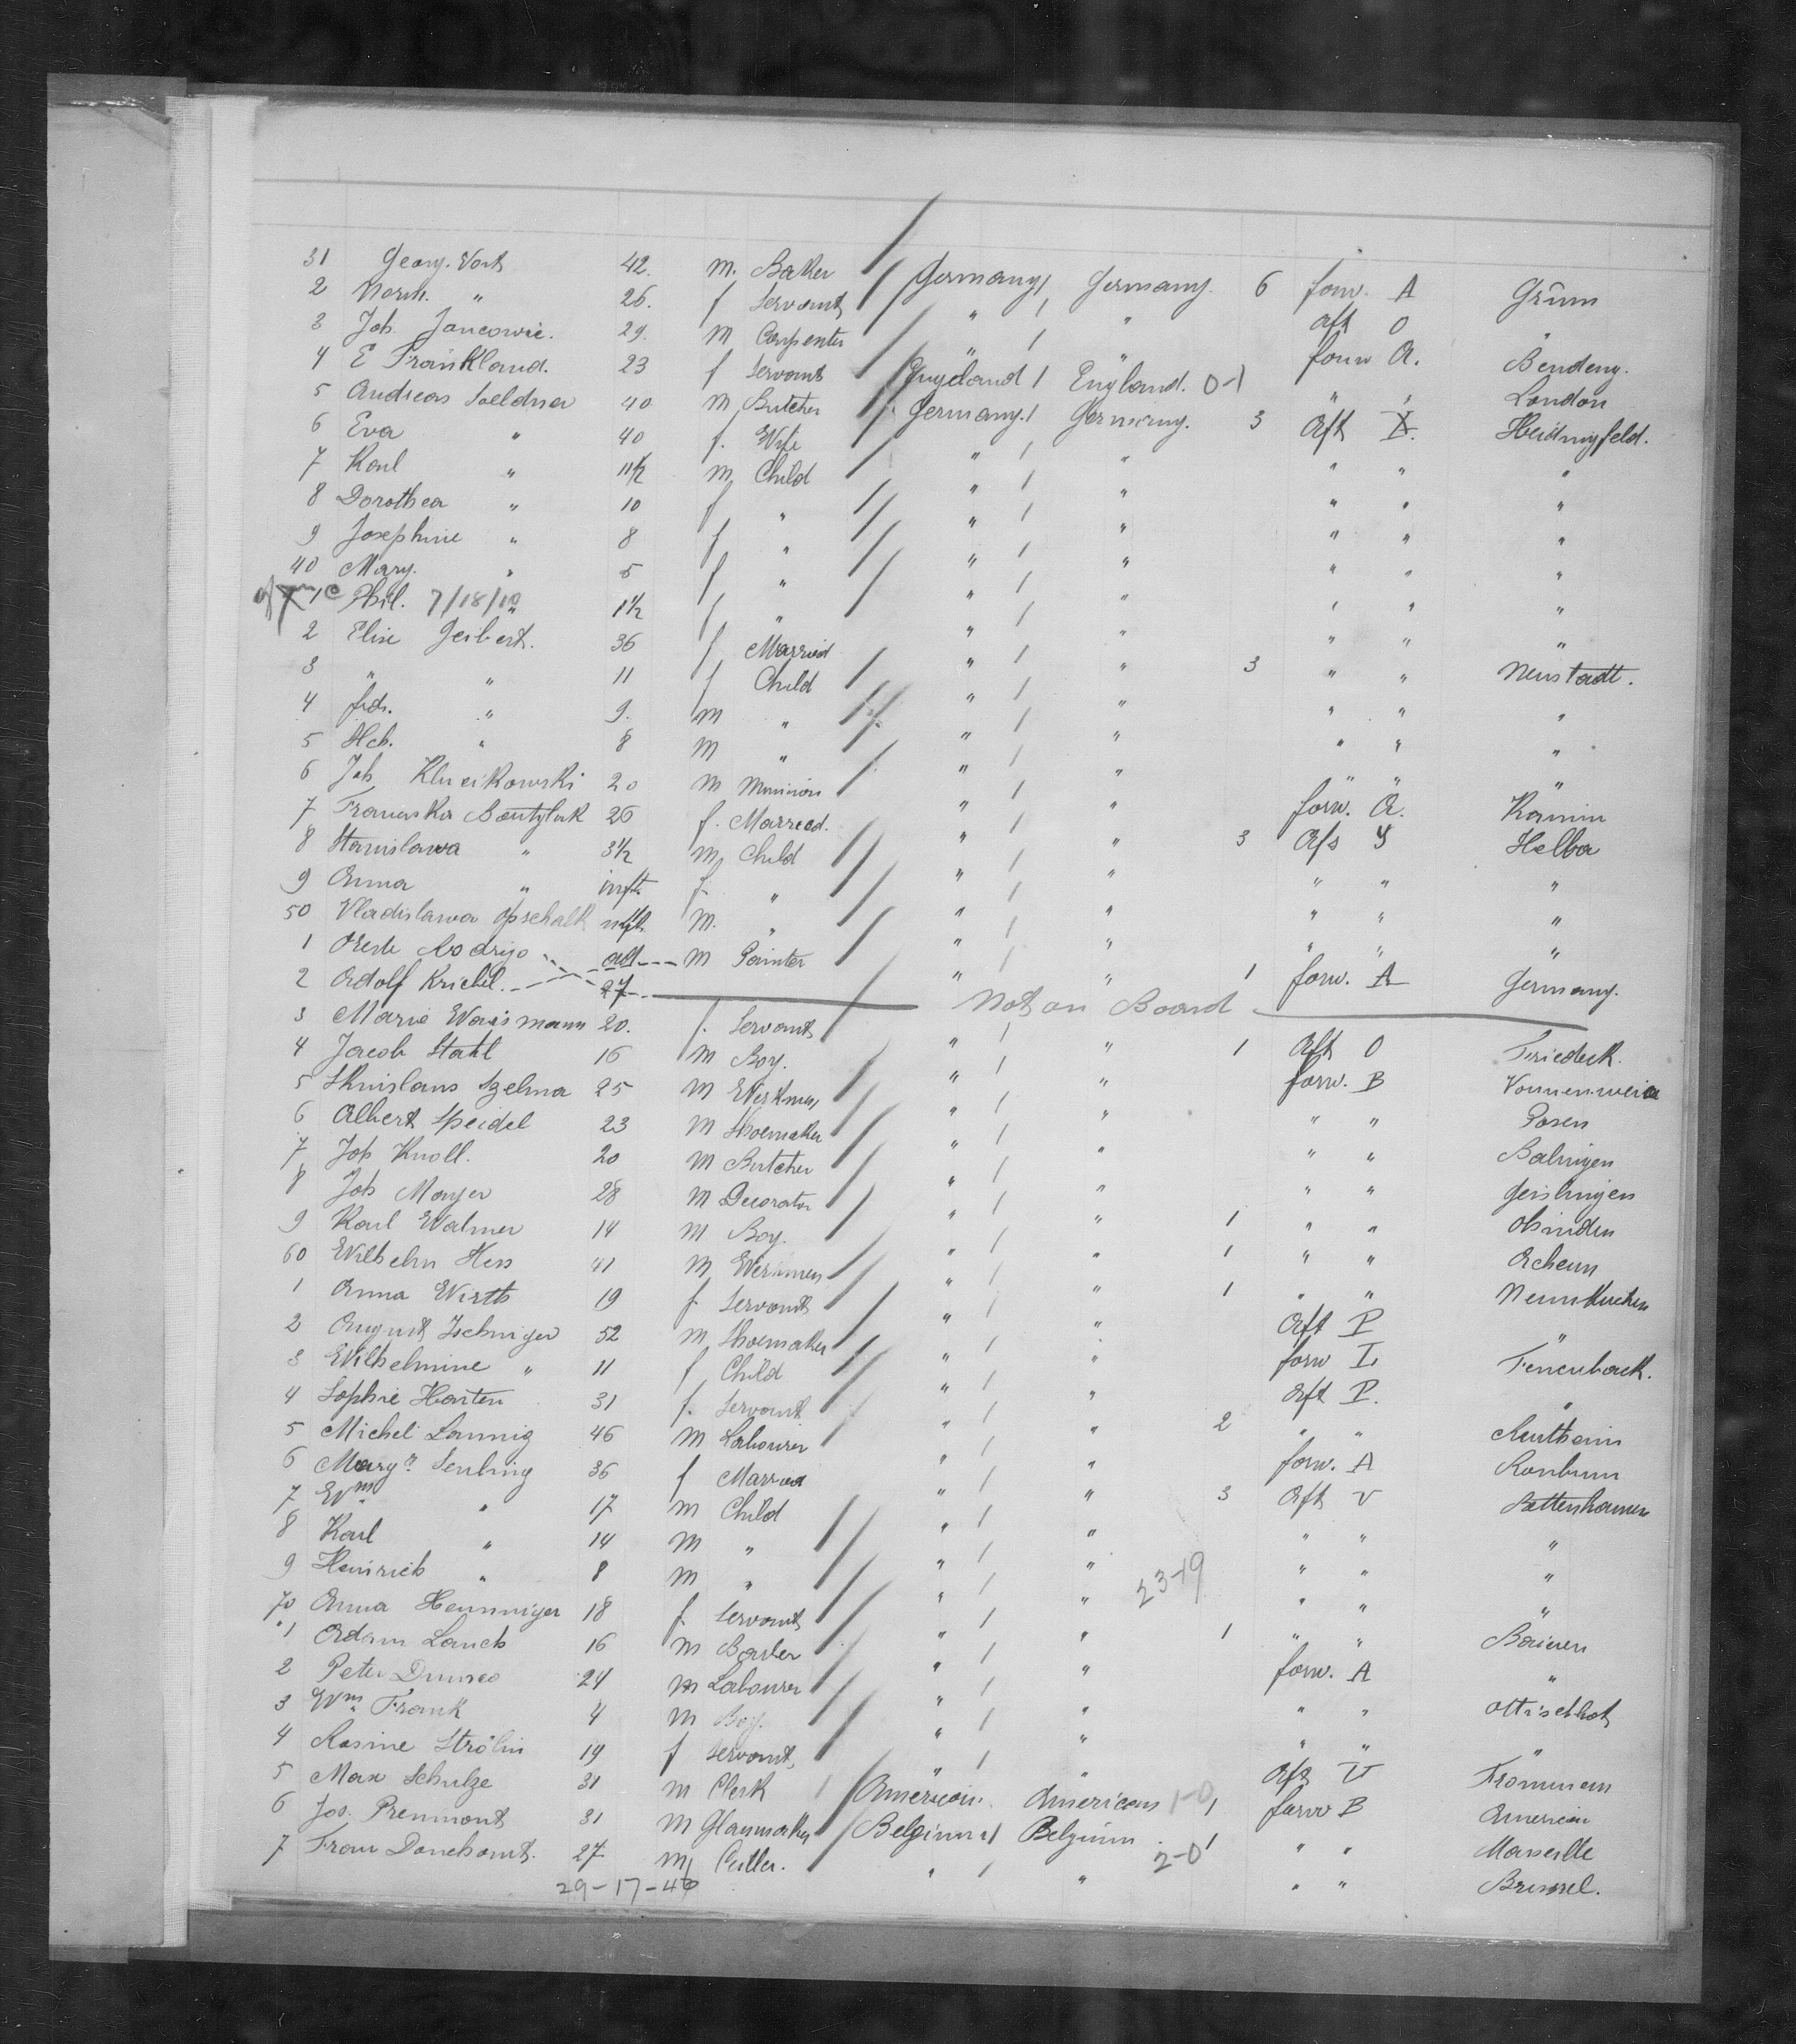 31 Georg. Vort 42. m. Baker / Germany / Germany. 6 forw. A Grünn
2 " 26. f Servant / " / " aft O "
3 Joh. Jancowic. 29. m Carpenter / " / " forw A. Bendeny.
4 E Frankland. 23 f Servant / England / England. 0-1 " " London
5 Andreas Seldner 40 m Butcher / Germany. / Germany. 3 Aft X. Heidingsfeld.
6 Eva " 40 f. Wife / " / " " " "
7 Karl " 11½ m Child / " / " " " "
8 Dorothea " 10 f " / " / " " " "
9 Josephine " 8 f " / " / " " " "
40 Mary. " 5 f " / " / " " " "
1 c Phil. 7/18/10 " 1½ f " / " / " " " "
2 Elise Geibert. 36 f Married / " / " 3 " " Neustadt.
3 " " 11 f Child / " / " " " "
4 frdr. " 9. m " / " / " " " "
5 Hch. " 8 m " / " / " " " "
6 Joh. Klucikowski 20 m / " / " forw. A. Kamin
7 26 f. Married. / " / " 3 Afs Y Helba
8 Stanislawa " 3½ m Child / " / " " " "
9 Anna " inft. f. " / " / " " " "
50 Vladislawa Opschalk m. " / " / " " " "
1 Rodrigo ad m Painter / " / " 1 forw. A Germany.
2 Adolf Krichel. 27 Not on Board
3 Marie Waismann 20. f. Servant / " / " 1 Aft O Friedeck.
4 Jacob Stahl 16 m Boy. / " / " forw. B
5 Szelma 25 m / " / " " " Posen
6 Albert Speidel 23 m Shoemaker / " / " " " Balingen
7 Joh Knoll. 20 m Butcher / " / " " " Geislingen
8 Joh Mayer 28 m Decorator / " / " 1 " "
9 Karl Walmer 14 m Boy. / " / " 1 " " Achern
60 Wilhelm Hess 41 m / " / " 1 " " Neunkirchen
1 Anna Wirth 19 f. Servant / " / " Aft P "
2 August 52 m Shoemaker / " / " forw I,
3 Wilhelmine " 11 f Child / " / " Aft P. "
4 Sophie Harten 31 f. Servant / " / " 2 " "
5 Michel Lannig 46 m Labourer / " / " forw. A
6 Margr. Senling 36 f Married / " / " 3 Aft V
7 Wm " 17 m Child / " / " " " "
8 Karl " 14 m " / " / " " " "
9 Heinrich " 8 m " / " / " 23-19 " " "
70 Anna Henninger 18 f. Servant / " / " 1 " " Baiern
1 Adam Lauch 16 m / " / " forw. A "
2 Peter 24 m Labourer / " / " " "
3 Wm Frank 4 m Boy. / " / " " " "
4 Rosine Strölin 19 f Servant, / " / " Aft V Frommern
5 Max Schulze 31 m Clerk / American. American 1-0 1 forw B American
6 Jos. Premmont 31 m Glasmaker / Belgium / Belgium 1 " " Marseille
7 27 m Cutler. " / " 2-0 " " Brussel.
29-17-46